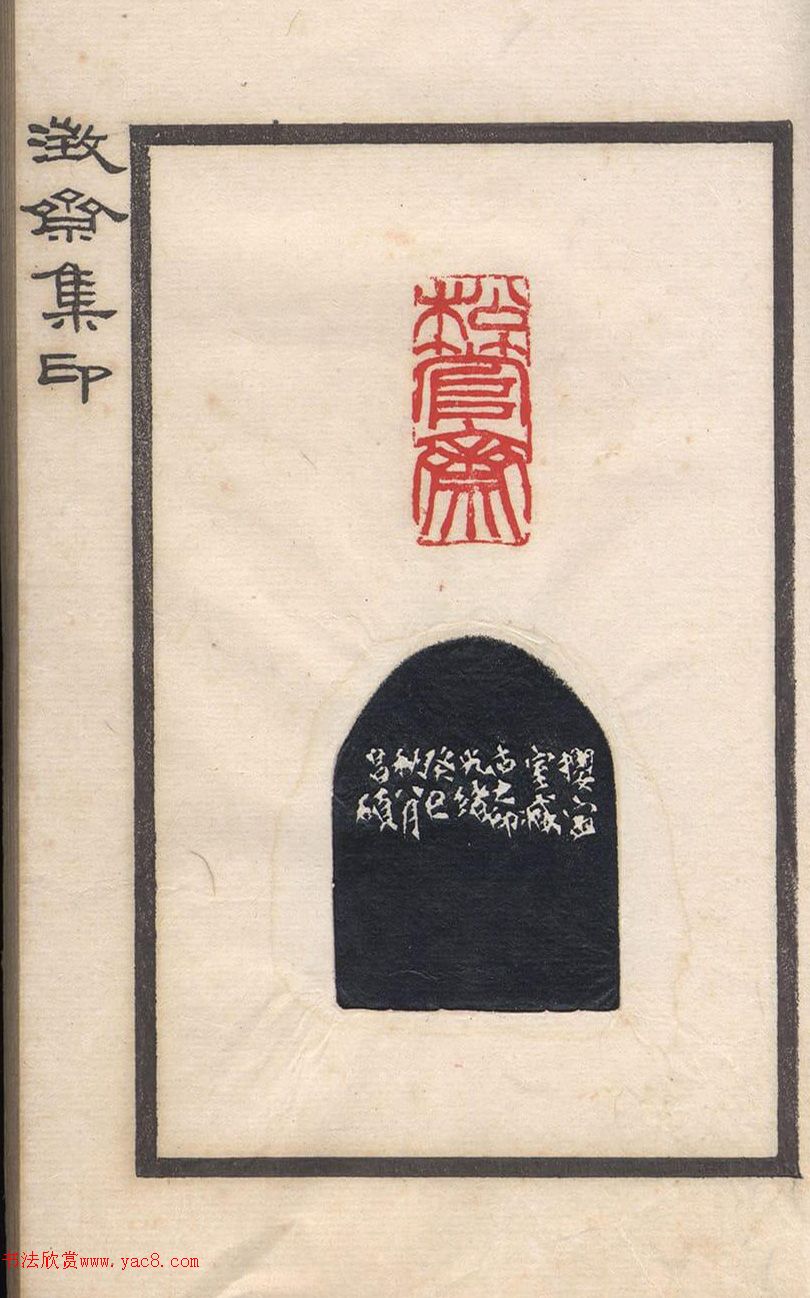 澂齋集印
松管齋
室藏
古印
光緒
癸巳
秋八月
昌碩
书法欣赏www.yac8.com